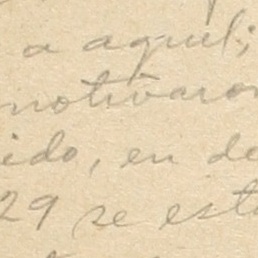 a aquel;
motivaron
ido, en de
29 se est